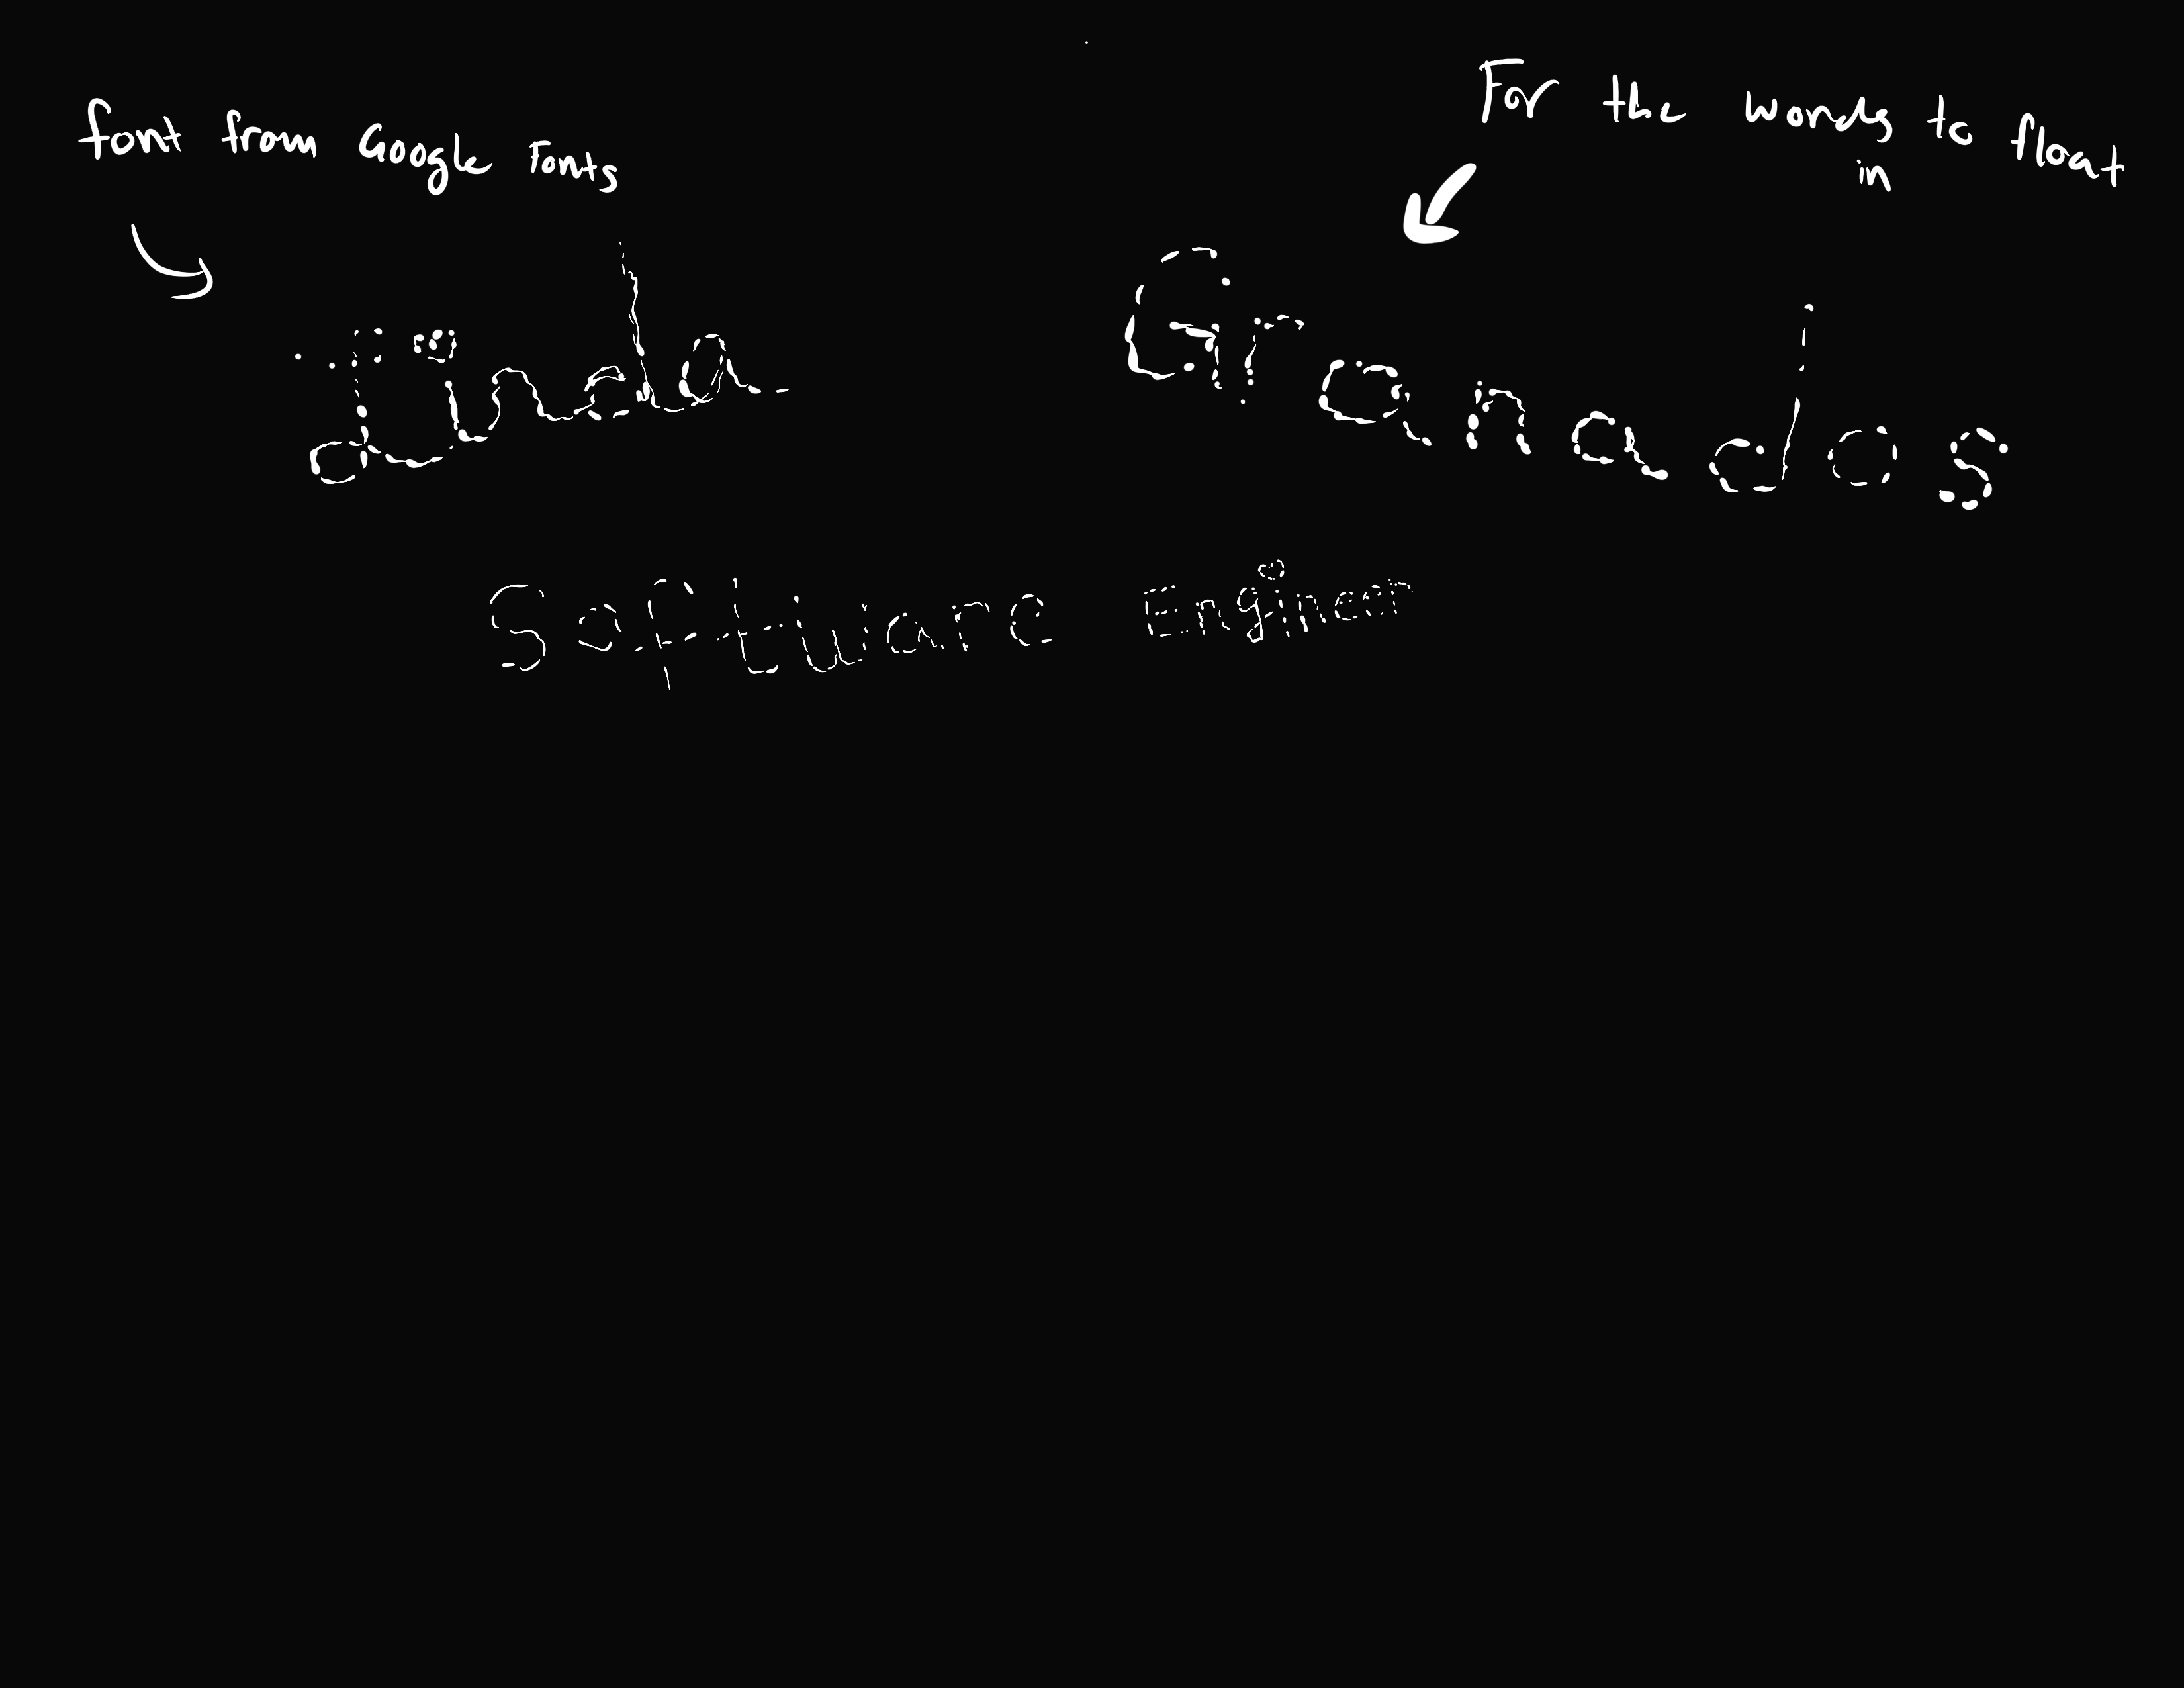 font from Google Fonts
For the words to float
in
Linda Granados
Software Engineer